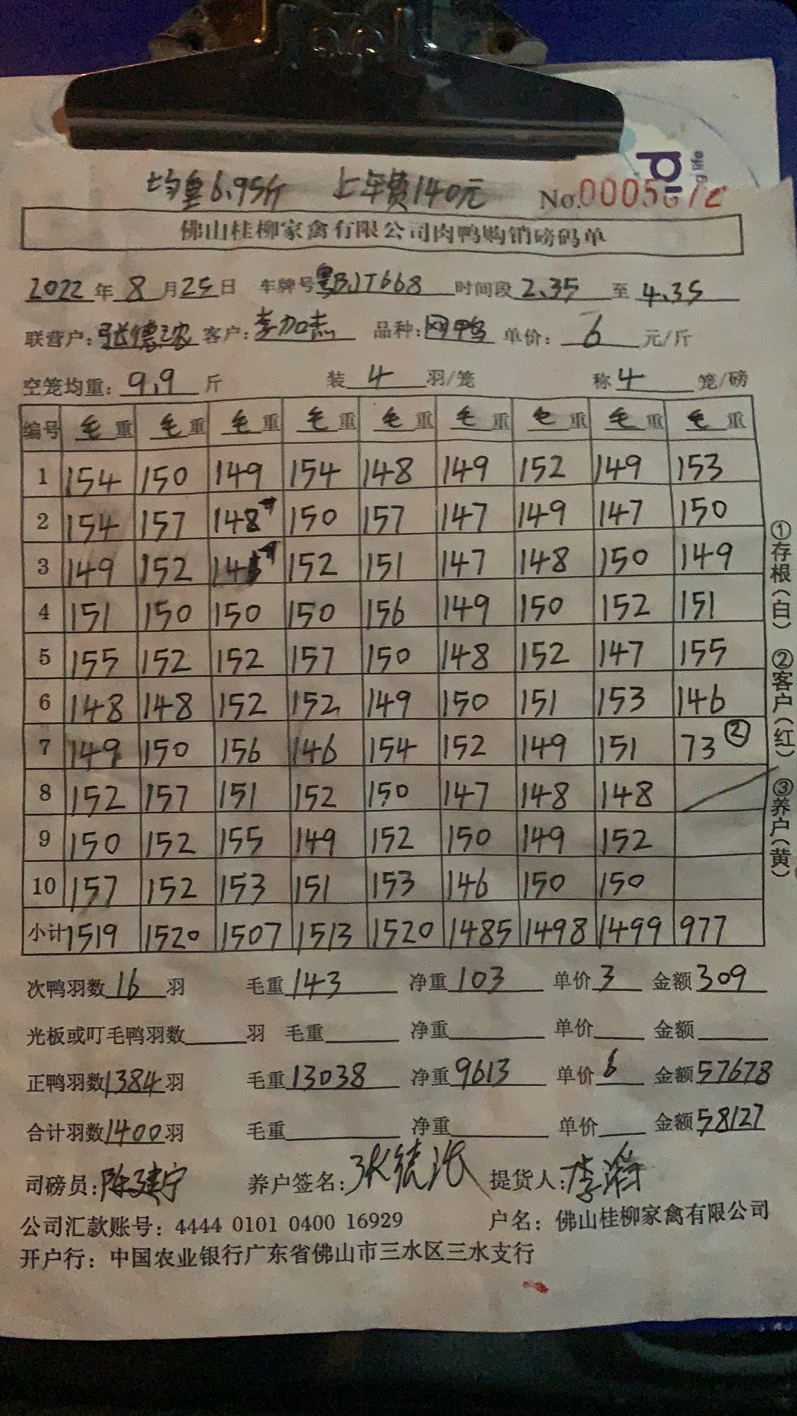 均重6.95斤 上车费140元 No.0005
佛山桂柳家禽有限公司肉鸭购销磅码单
2022年8月25日 车牌号粤BJT668 时间段2.35至4.35
联营户:张德 客户:李加志 品种: 单价:6元/斤
空笼均重:9.9斤 装4羽/笼 称4笼/磅
编号 毛重 毛重 毛重 毛重 毛重 毛重 毛重 毛重 毛重
1 154 150 149 154 148 149 152 149 153
2 154 157 148 150 157 147 149 147 150
3 149 152 152 151 147 148 150 149
4 151 150 150 150 156 149 150 152 151
5 155 152 152 157 150 148 152 147 155
6 148 148 152 152 149 150 151 153 146
7 149 150 156 146 154 152 149 151 73②
8 152 157 151 152 150 147 148 148
9 150 152 155 149 152 150 149 152
10 157 152 153 151 153 146 150 150
小计 1519 1520 1507 1513 1520 1485 1498 1499 977
次鸭羽数16羽 毛重143 净重103 单价3 金额309
光板或叮毛鸭羽数 羽 毛重 净重 单价 金额
正鸭羽数1384羽 毛重13038 净重9613 单价6 金额57678
合计羽数1400羽 毛重 净重 单价 金额58127
司磅员:陈建宁 养户签名: 提货人:李
公司汇款账号:4444 0101 0400 16929 户名:佛山桂柳家禽有限公司
开户行:中国农业银行广东省佛山市三水区三水支行
①存根(白) ②客户(红) ③养户(黄)